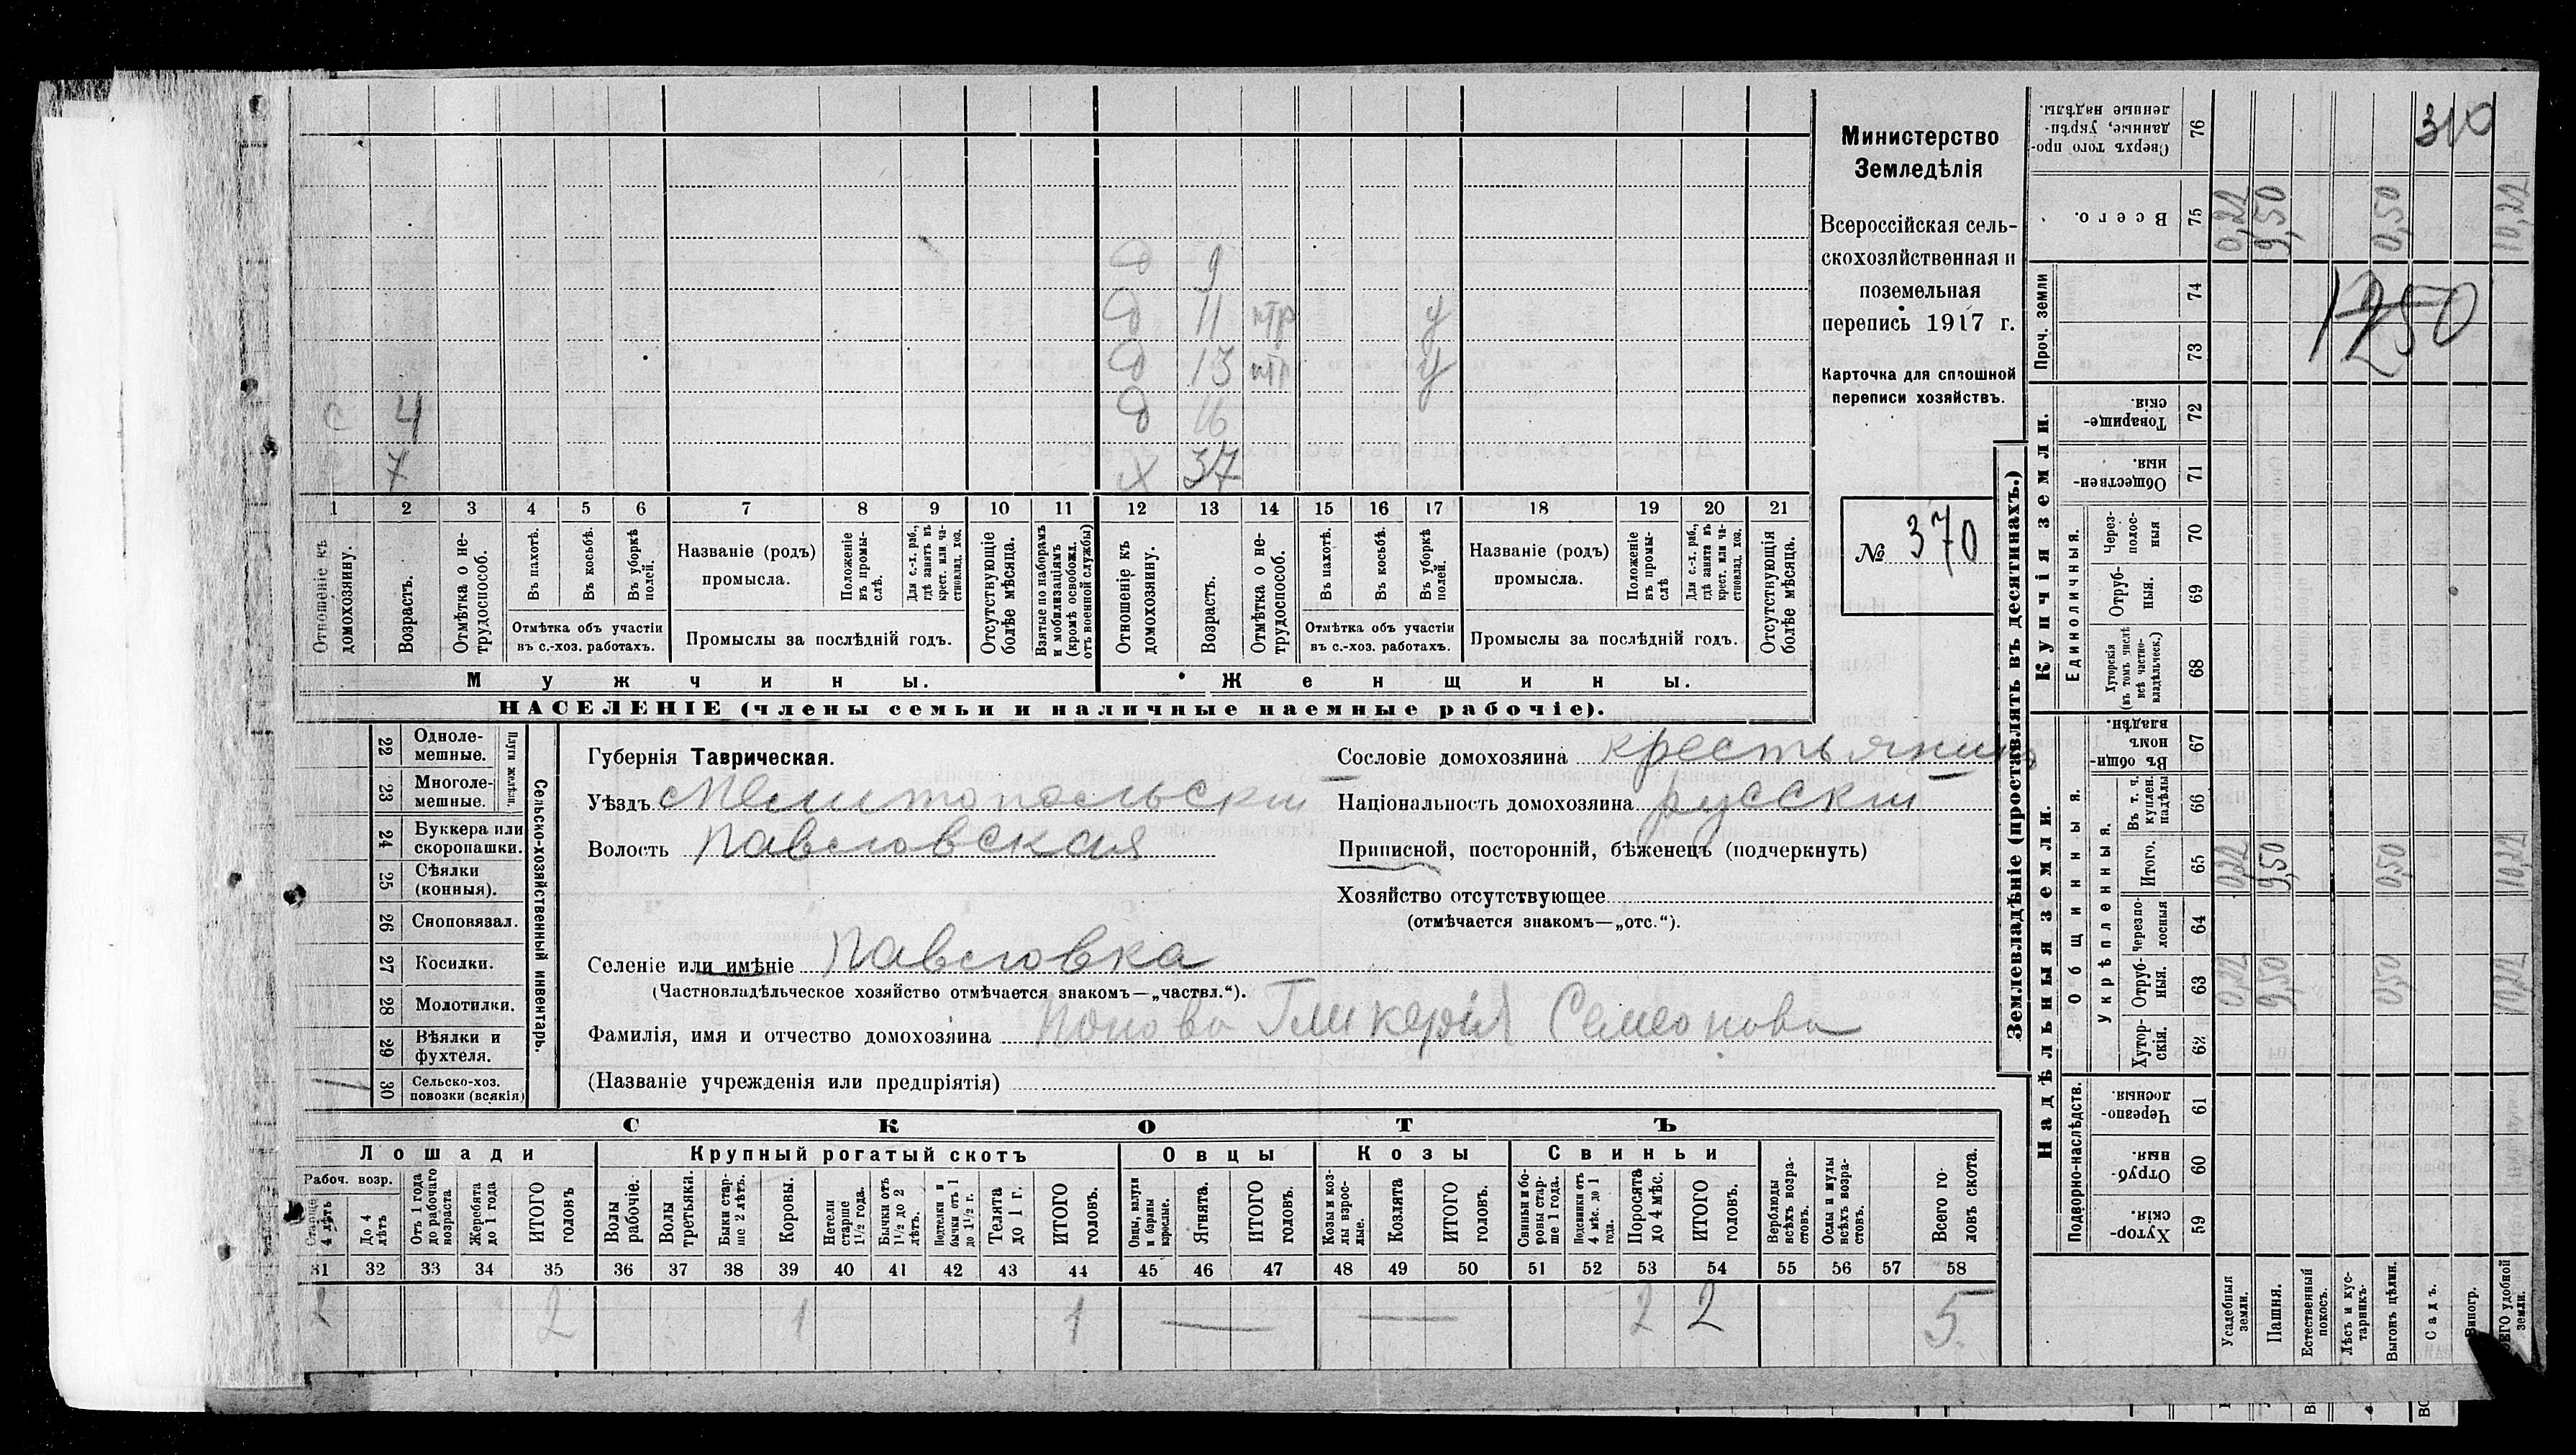 д 9
д 11 нтр у
д 13 нтр у
с 4 д 16
7 х 37
1 2 3 4 5 6 7 8 9 10 11 12 13 14 15 16 17 18 19 20 21
Отношеніе къ домохозяину.
Возрастъ.
Отмѣтка о нетрудоспособ.
Въ пахотѣ.
Въ косьбѣ.
Въ уборкѣ полей.
Отмѣтка объ участіи
въ с.-хоз. работахъ.
Названіе (родъ)
промысла.
Положеніе въ промыслѣ.
Для с.-х. раб., гдѣ занятъ въ крест. или частновлад. хоз.
Промыслы за послѣдній годъ.
Отсутствующіе болѣе мѣсяца.
Взятые по наборамъ и мобилизаціямъ (кромѣ освобожд. отъ военной службы)
Отношеніе къ домохозяину.
Возрастъ.
Отмѣтка о нетрудоспособ.
Въ пахотѣ.
Въ косьбѣ.
Въ уборкѣ полей.
Отмѣтка объ участіи
въ с.-хоз. работахъ.
Названіе (родъ)
промысла.
Положеніе въ промыслѣ
Для с.-х. раб., гдѣ занята въ крест. или частновлад. хоз.
Промыслы за послѣдній годъ.
Отсутствующія болѣе мѣсяца.
Мужчины. Женщины.
НАСЕЛЕНІЕ (члены семьи и наличные наемные рабочіе).
Министерство
Земледѣлія
Всероссійская сель-
скохозяйственная и
поземельная
перепись 1917 г.
Карточка для сплошной
переписи хозяйствъ.
№ 370
Сельско-хозяйственный инвентарь.
Плуги желѣзн.
22 Одноле-
мешные.
23 Многоле-
мешные.
24 Буккера или
скоропашки.
25 Сѣялки
(конныя).
26 Сноповязал.
27 Косилки.
28 Молотилки.
29 Вѣялки и
фухтеля.
30 Сельско-хоз.
повозки (всякія)
1
Губернія Таврическая.
Уѣздъ Мелитопольскій
Волость Павловская
Селеніе или имѣніе Павловка
(Частновладѣльческое хозяйство отмѣчается знакомъ—„частвл.“).
Фамилія, имя и отчество домохозяина Попова Гликерія Семеонова
(Названіе учрежденія или предпріятія)
Сословіе домохозяина крестьянинъ
Національность домохозяина русскій
Приписной, посторонній, бѣженецъ (подчеркнуть)
Хозяйство отсутствующее
(отмѣчается знакомъ—„отс.“).
СКОТЪ
Лошади Крупный рогатый скотъ Овцы Козы Свиньи
Рабоч. возр.
Старше 4 лѣтъ
До 4 лѣтъ
Отъ 1 года до рабочаго возраста
Жеребята до 1 года
ИТОГО головъ
Волы рабочіе.
Волы третьяки.
Быки старше 2 лѣтъ.
Коровы.
Нетели старше 1½ года.
Бычки отъ 1½ до 2 лѣтъ.
Подтелки и бычки отъ 1 до 1½ г.
Телята до 1 г.
ИТОГО головъ.
Овцы, валухи и бараны взрослые.
Ягнята.
ИТОГО головъ.
Козы и козлы взрослые.
Козлята
ИТОГО головъ.
Свиньи и боровы старше 1 года.
Подсвинки отъ 4 мѣс. до 1 года.
Поросята до 4 мѣс.
ИТОГО головъ.
Верблюды всѣхъ возрастовъ.
Ослы и мулы всѣхъ возрастовъ.
Всего головъ скота.
31 32 33 34 35 36 37 38 39 40 41 42 43 44 45 46 47 48 49 50 51 52 53 54 55 56 57 58
2 2 1 1 — — 2 2 5
Землевладѣніе (проставлять въ десятинахъ.)
Надѣльныя земли. Купчія земли. Проч. земли
Подворно-наслѣдств.
Общинныя.
Укрѣпленныя.
Единоличныя.
Сверхъ того проданные, укрѣпленные надѣлы. 76
Всего. 75 0,22 9,50 0,50 10,22
74
73
Товарищескія. 72
Общественныя. 71
Черезполосныя 70
Отрубныя. 69
Хуторскія (въ томъ числѣ всѣ частновладѣльческ.) 68
Въ общинномъ владѣн. 67
Въ т. ч. куплен. надѣлы 66
Итого. 65 0,22 9,50 0,50 10,22
Черезполосныя 64
Отрубныя. 63 0,22 9,50 0,50 10,22
Хуторскія. 62
Черезполосныя. 61
Отрубныя. 60
Хуторскія. 59
Усадебныя земли.
Пашня.
Естественный покосъ.
Лѣсъ и кустарникъ.
Выгонъ цѣлин.
Садъ.
Виногр.
удобной земли.
310